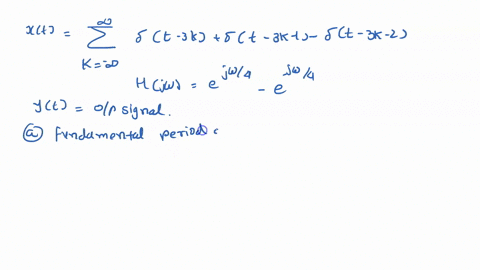 x(t) = ∞ ∑ K=-∞ δ(t-3k) + δ(t-3k-1) - δ(t-3k-2)
H(jω) = e^{jω/4} - e^{jω/4}
y(t) = o/p signal.
ⓐ fundamental period c